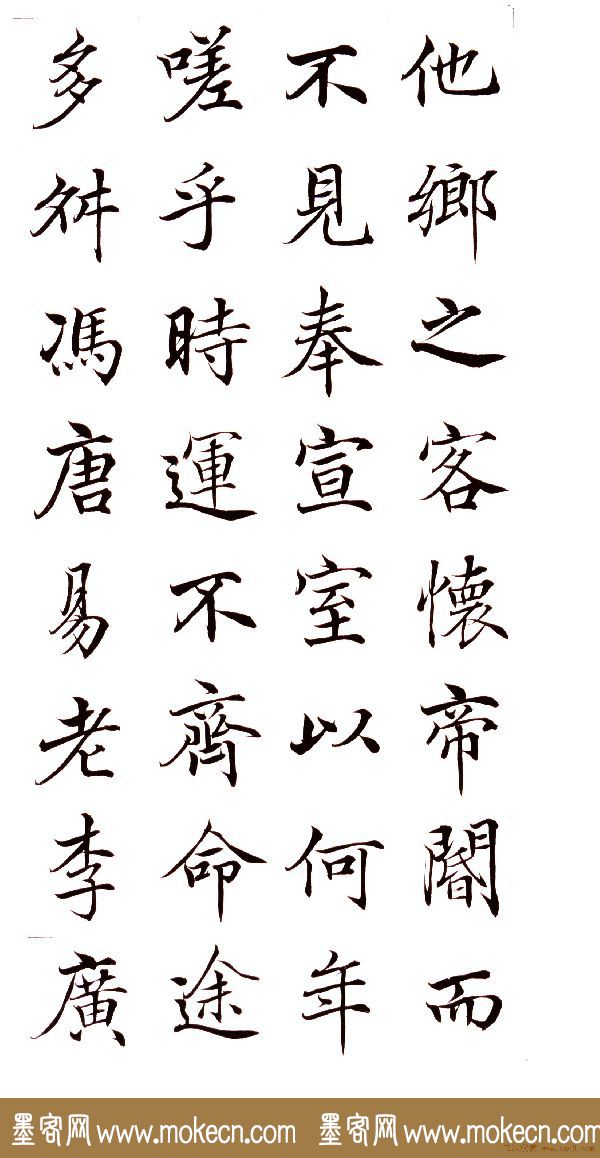 他鄉之客懷帝閽而
不見奉宣室以何年
嗟乎時運不齊命途
多舛馮唐易老李廣
墨客网 www.mokecn.com 墨客网 www.mokecn.com